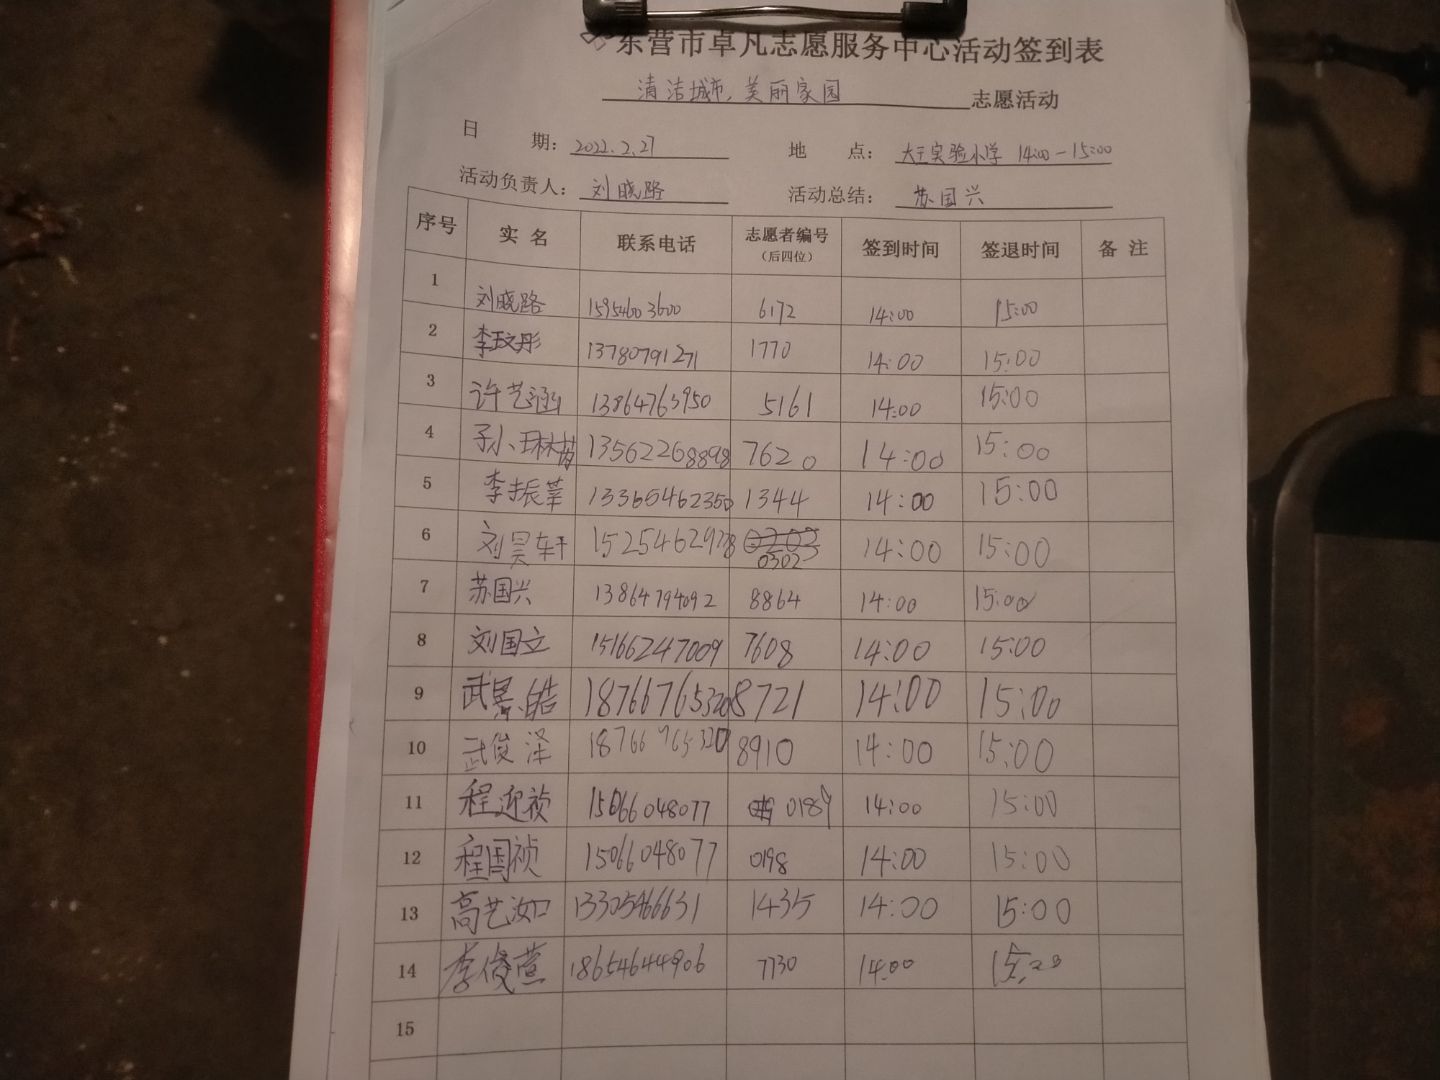 东营市卓凡志愿服务中心活动签到表
清洁城市,美丽家园 志愿活动
日 期: 2022.2.27 地 点: 大王实验小学 14:00-15:00
活动负责人: 刘晓路 活动总结: 苏国兴
序号 实 名 联系电话 志愿者编号(后四位) 签到时间 签退时间 备 注
1 刘晓路 15954603600 6172 14:00 15:00
2 李玟彤 13780791271 1770 14:00 15:00
3 许艺涵 13864763950 5161 14:00 15:00
4 孙琳茜 13562268898 7620 14:00 15:00
5 李振苹 13365462350 1344 14:00 15:00
6 刘昊轩 15254629278 0302 14:00 15:00
7 苏国兴 13864794092 8864 14:00 15:00
8 刘国立 15166247009 7608 14:00 15:00
9 武景皓 18766765320 8721 14:00 15:00
10 武俊泽 18766765320 8910 14:00 15:00
11 程迎祯 15066048077 0189 14:00 15:00
12 程国祯 15066048077 0198 14:00 15:00
13 高艺汝 13305466631 1435 14:00 15:00
14 李俊萱 18654644906 7730 14:00
15